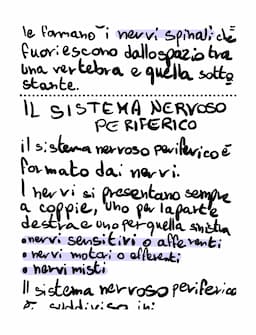 le formano i nervi spinali che
fuoriescono dallo spazio tra
una vertebra e quella sotto
stante.
IL SISTEMA NERVOSO
PERIFERICO
il sistema nervoso periferico é
formato dai nervi.
I nervi si presentano sempre
a coppie, uno per la parte
destra e uno per quella sinistra
• nervi sensitivi o afferenti
• nervi motori o efferenti
• nervi misti
Il sistema nervoso periferico
è suddiviso in: